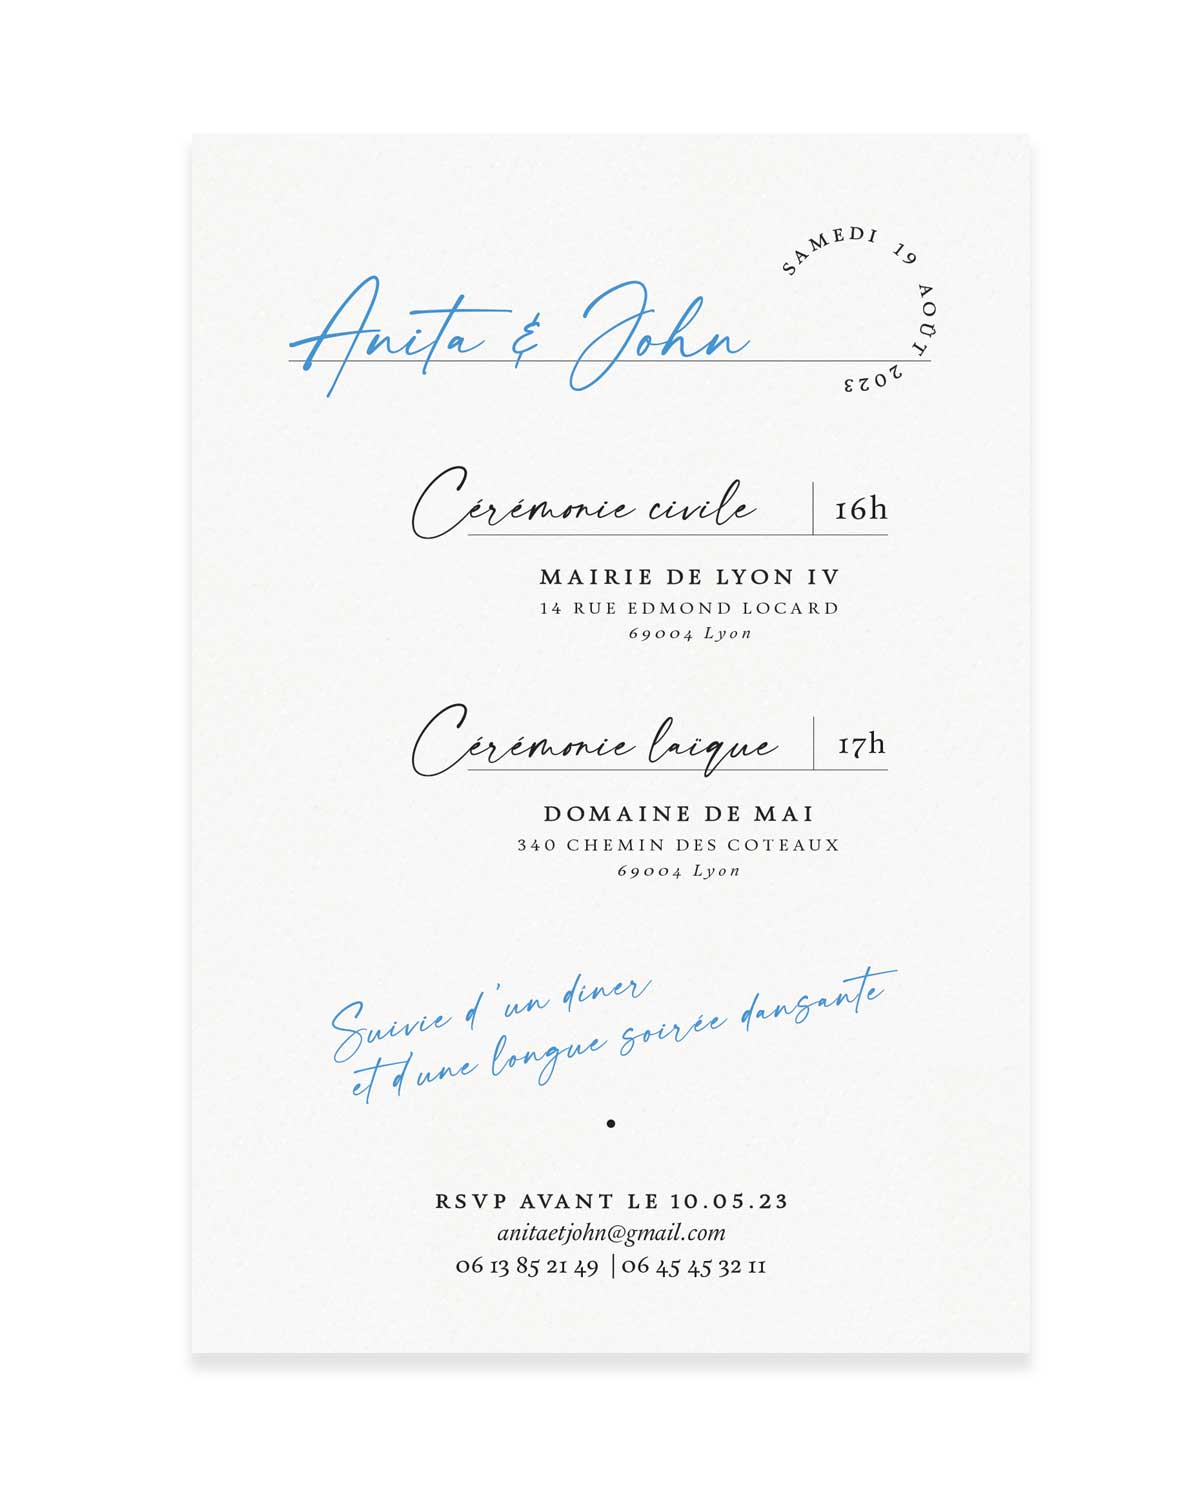 SAMEDI 19 AOÛT 2023
Anita & John
Cérémonie civile | 16h
MAIRIE DE LYON IV
14 RUE EDMOND LOCARD
69004 Lyon
Cérémonie laïque | 17h
DOMAINE DE MAI
340 CHEMIN DES COTEAUX
69004 Lyon
Suivie d'un dîner
et d'une longue soirée dansante
•
RSVP AVANT LE 10.05.23
anitaetjohn@gmail.com
06 13 85 21 49 | 06 45 45 32 11